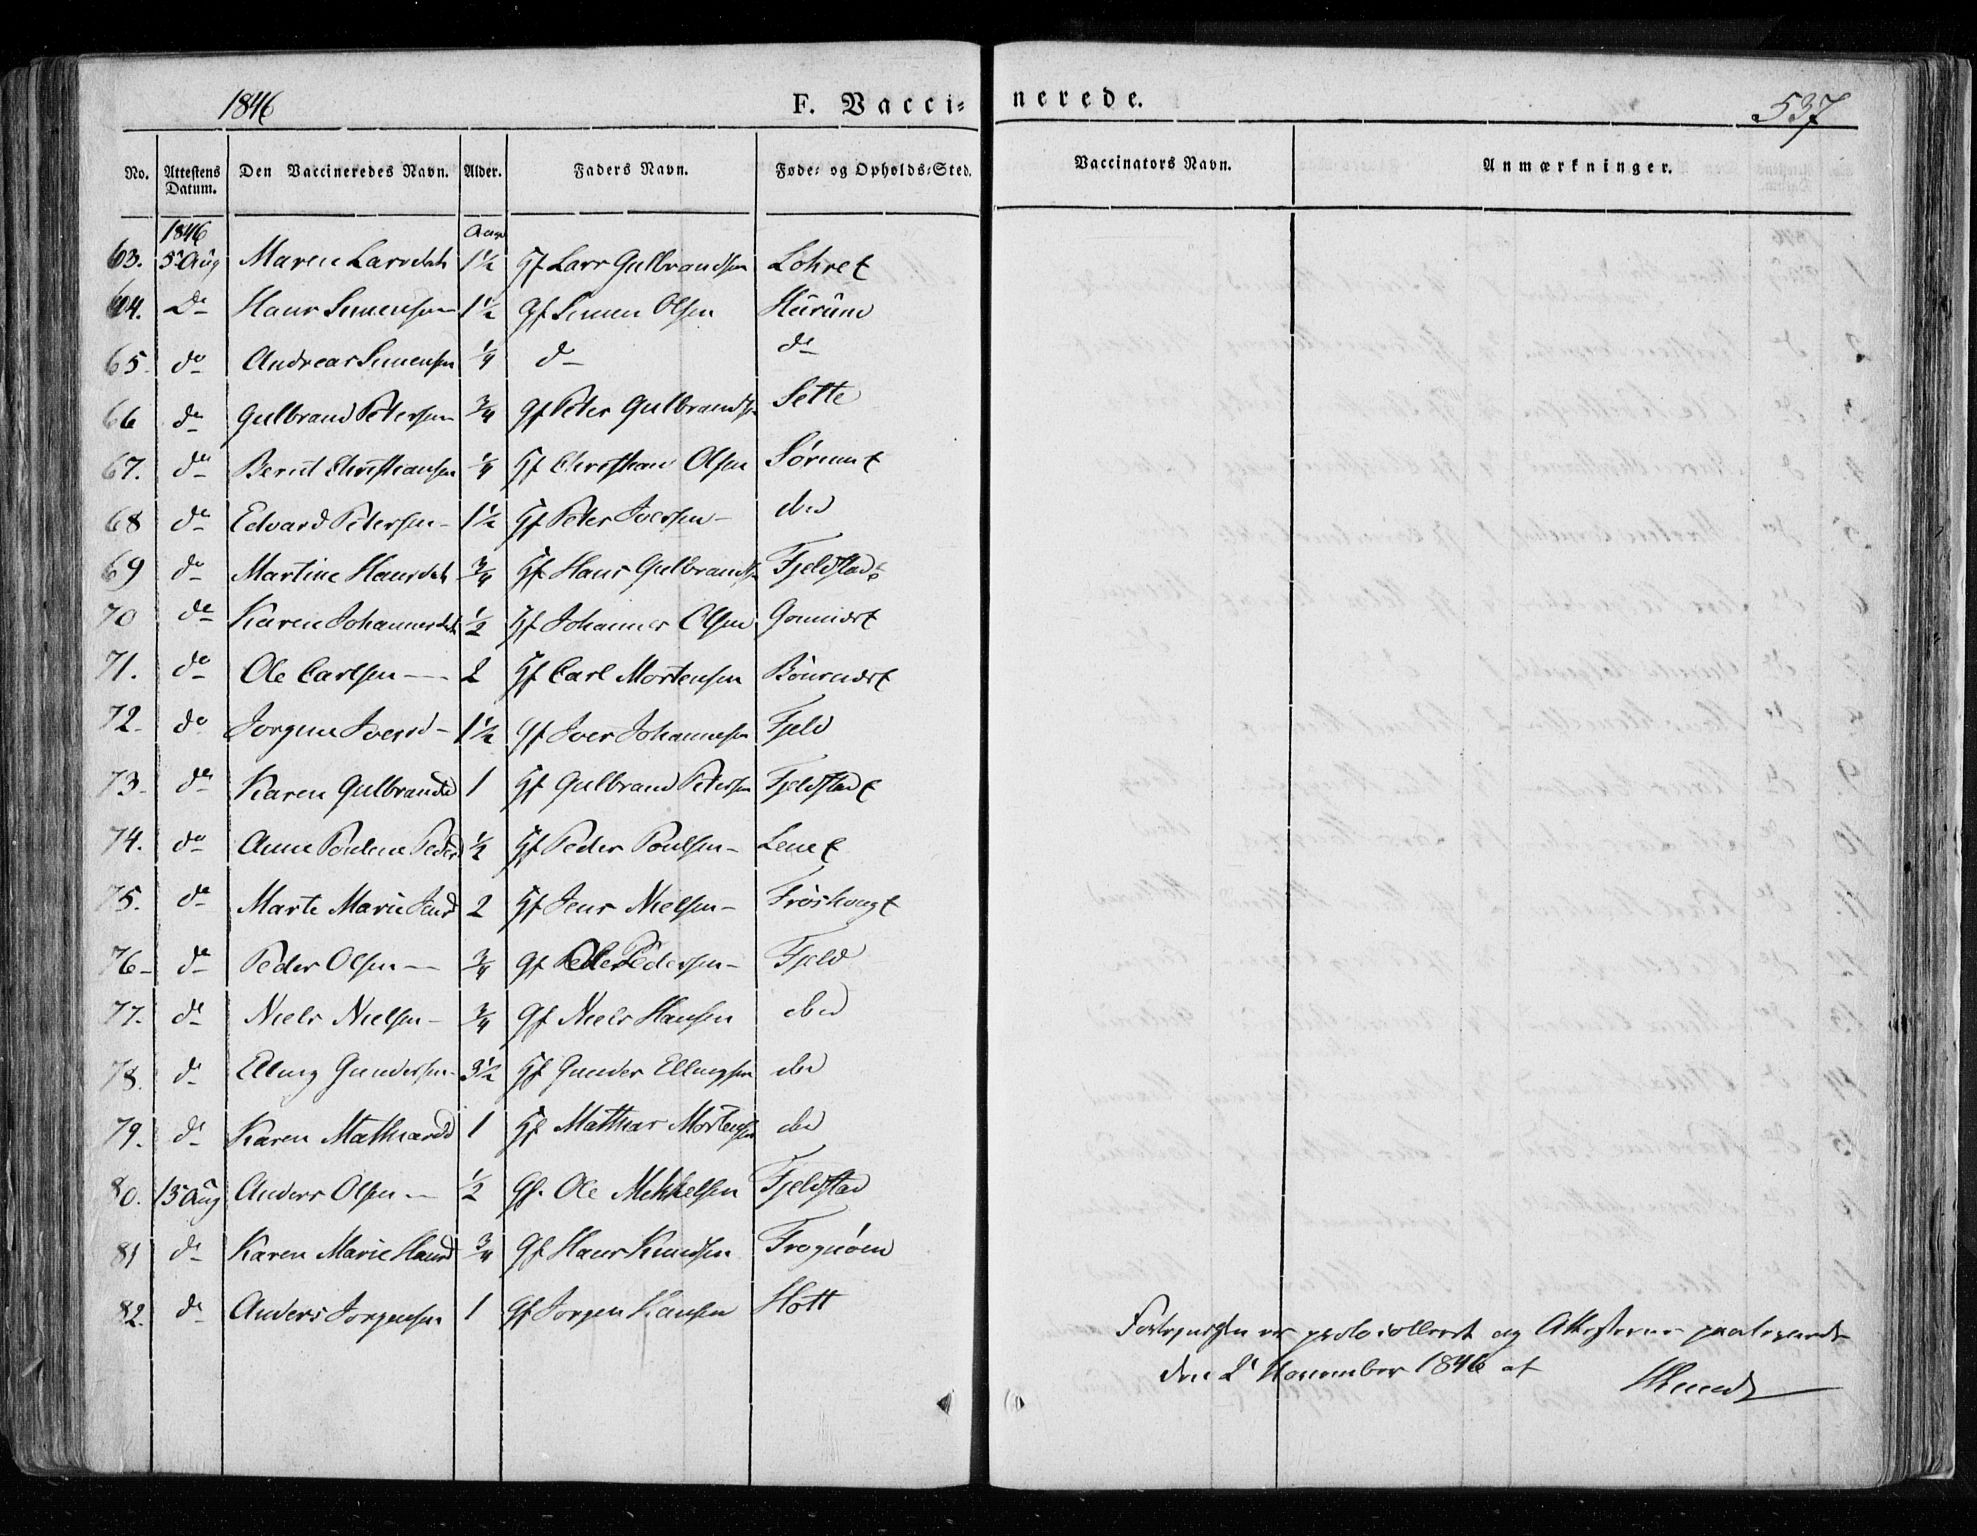 1846 F. Vacci= nerede. 537
No. Attestens Datum. Den Vaccineredes Navn. Alder. Faders Navn. Føde= og Opholds=Sted. Vaccinators Navn. Anmærkninger.
1846 Aar
63. 5 Aug Maren Larsdat 1½ Gf Lars Gulbrandsen
64. do Hans Simensen 1½ Gf Simen Olsen Hurum
65. do Andreas Simensen ¼ do do
66 do Gulbrand Petersen ¾ Gf Peter Gulbrands Sette
67. do Bernt Christiansen ¼ Gf Christian Olsen
68 do Edvard Petersen 1½ Gf Peter Iversen ibd
69 do Martine Hansdat ¾ Gf Hans Gulbrandsen Fjeldstad
70 do Karen Johannesdat ½ Gf Johannes Olsen
71. do Ole Carlsen 2 Gf Carl Mortensen
72. do Jorgine Iversd 1½ Gf Iver Johannesen Fjeld
73. do Karen Gulbrandsd 1 Gf Gulbrand Petersen Fjeldstad
74. do Anne Pouline Peders ½ Gf Peder Poulsen
75. do Marte Marie Jensd 2 Gf Jens Nielsen
76 do Peder Olsen ¾ Gf Ole Pedersen Fjeld
77. do Niels Nielsen ¾ Gf Niels Hansen ibd
78. do Elling Gundersen 3½ Gf Gunder Ellingsen ibd
79. do Karen Mathiasd 1 Gf Mathias Mortensen ibd
80. 15 Aug Anders Olsen ½ Gf. Ole Mikkelsen Fjeldstad
81 do Karen Marie Hansd ¾ Gf Hans Knudsen Frognøen
82. do Anders Jorgensen 1 Gf Jorgen Hansen Hott
er protocolleret og Attesterne
den 2 November 1846 af